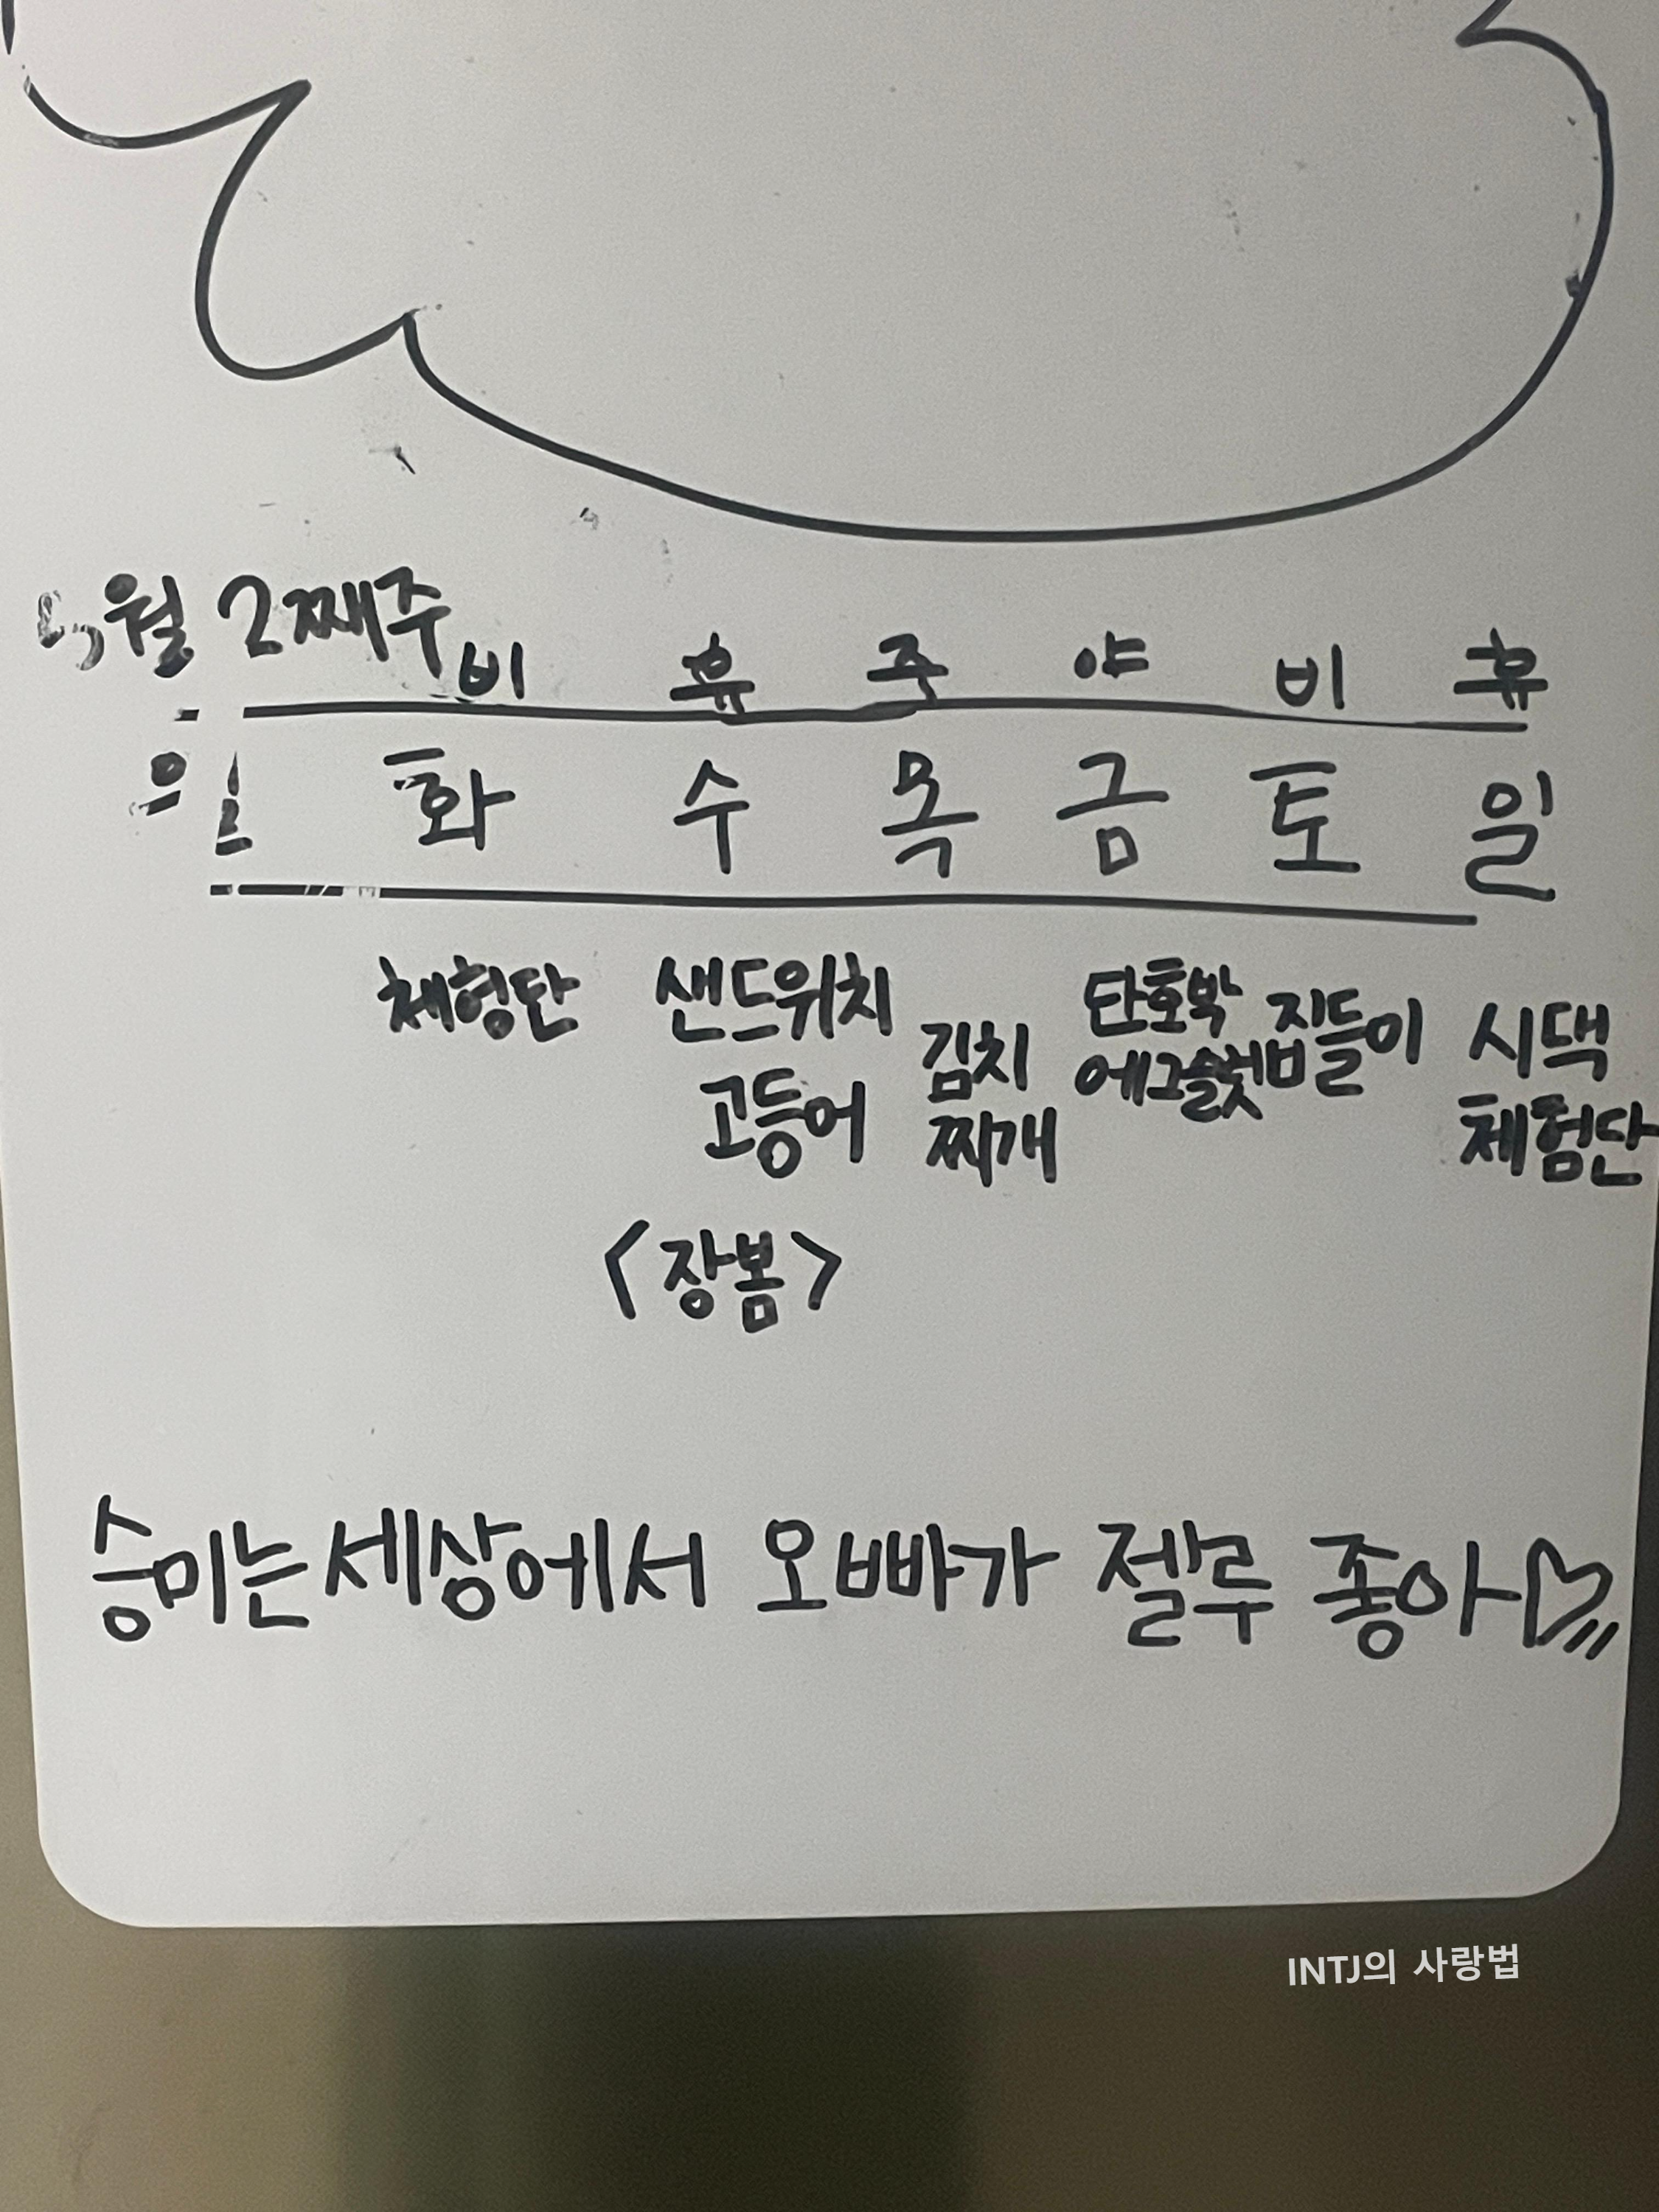 5월 2째주
비 휴 주 야 비 휴
월 화 수 목 금 토 일
체험단 샌드위치 단호박 집들이 시댁
고등어 김치 에그슬럿 체험단
찌개
<장봄>
승미는 세상에서 오빠가 젤루 좋아♡
INTJ의 사랑법